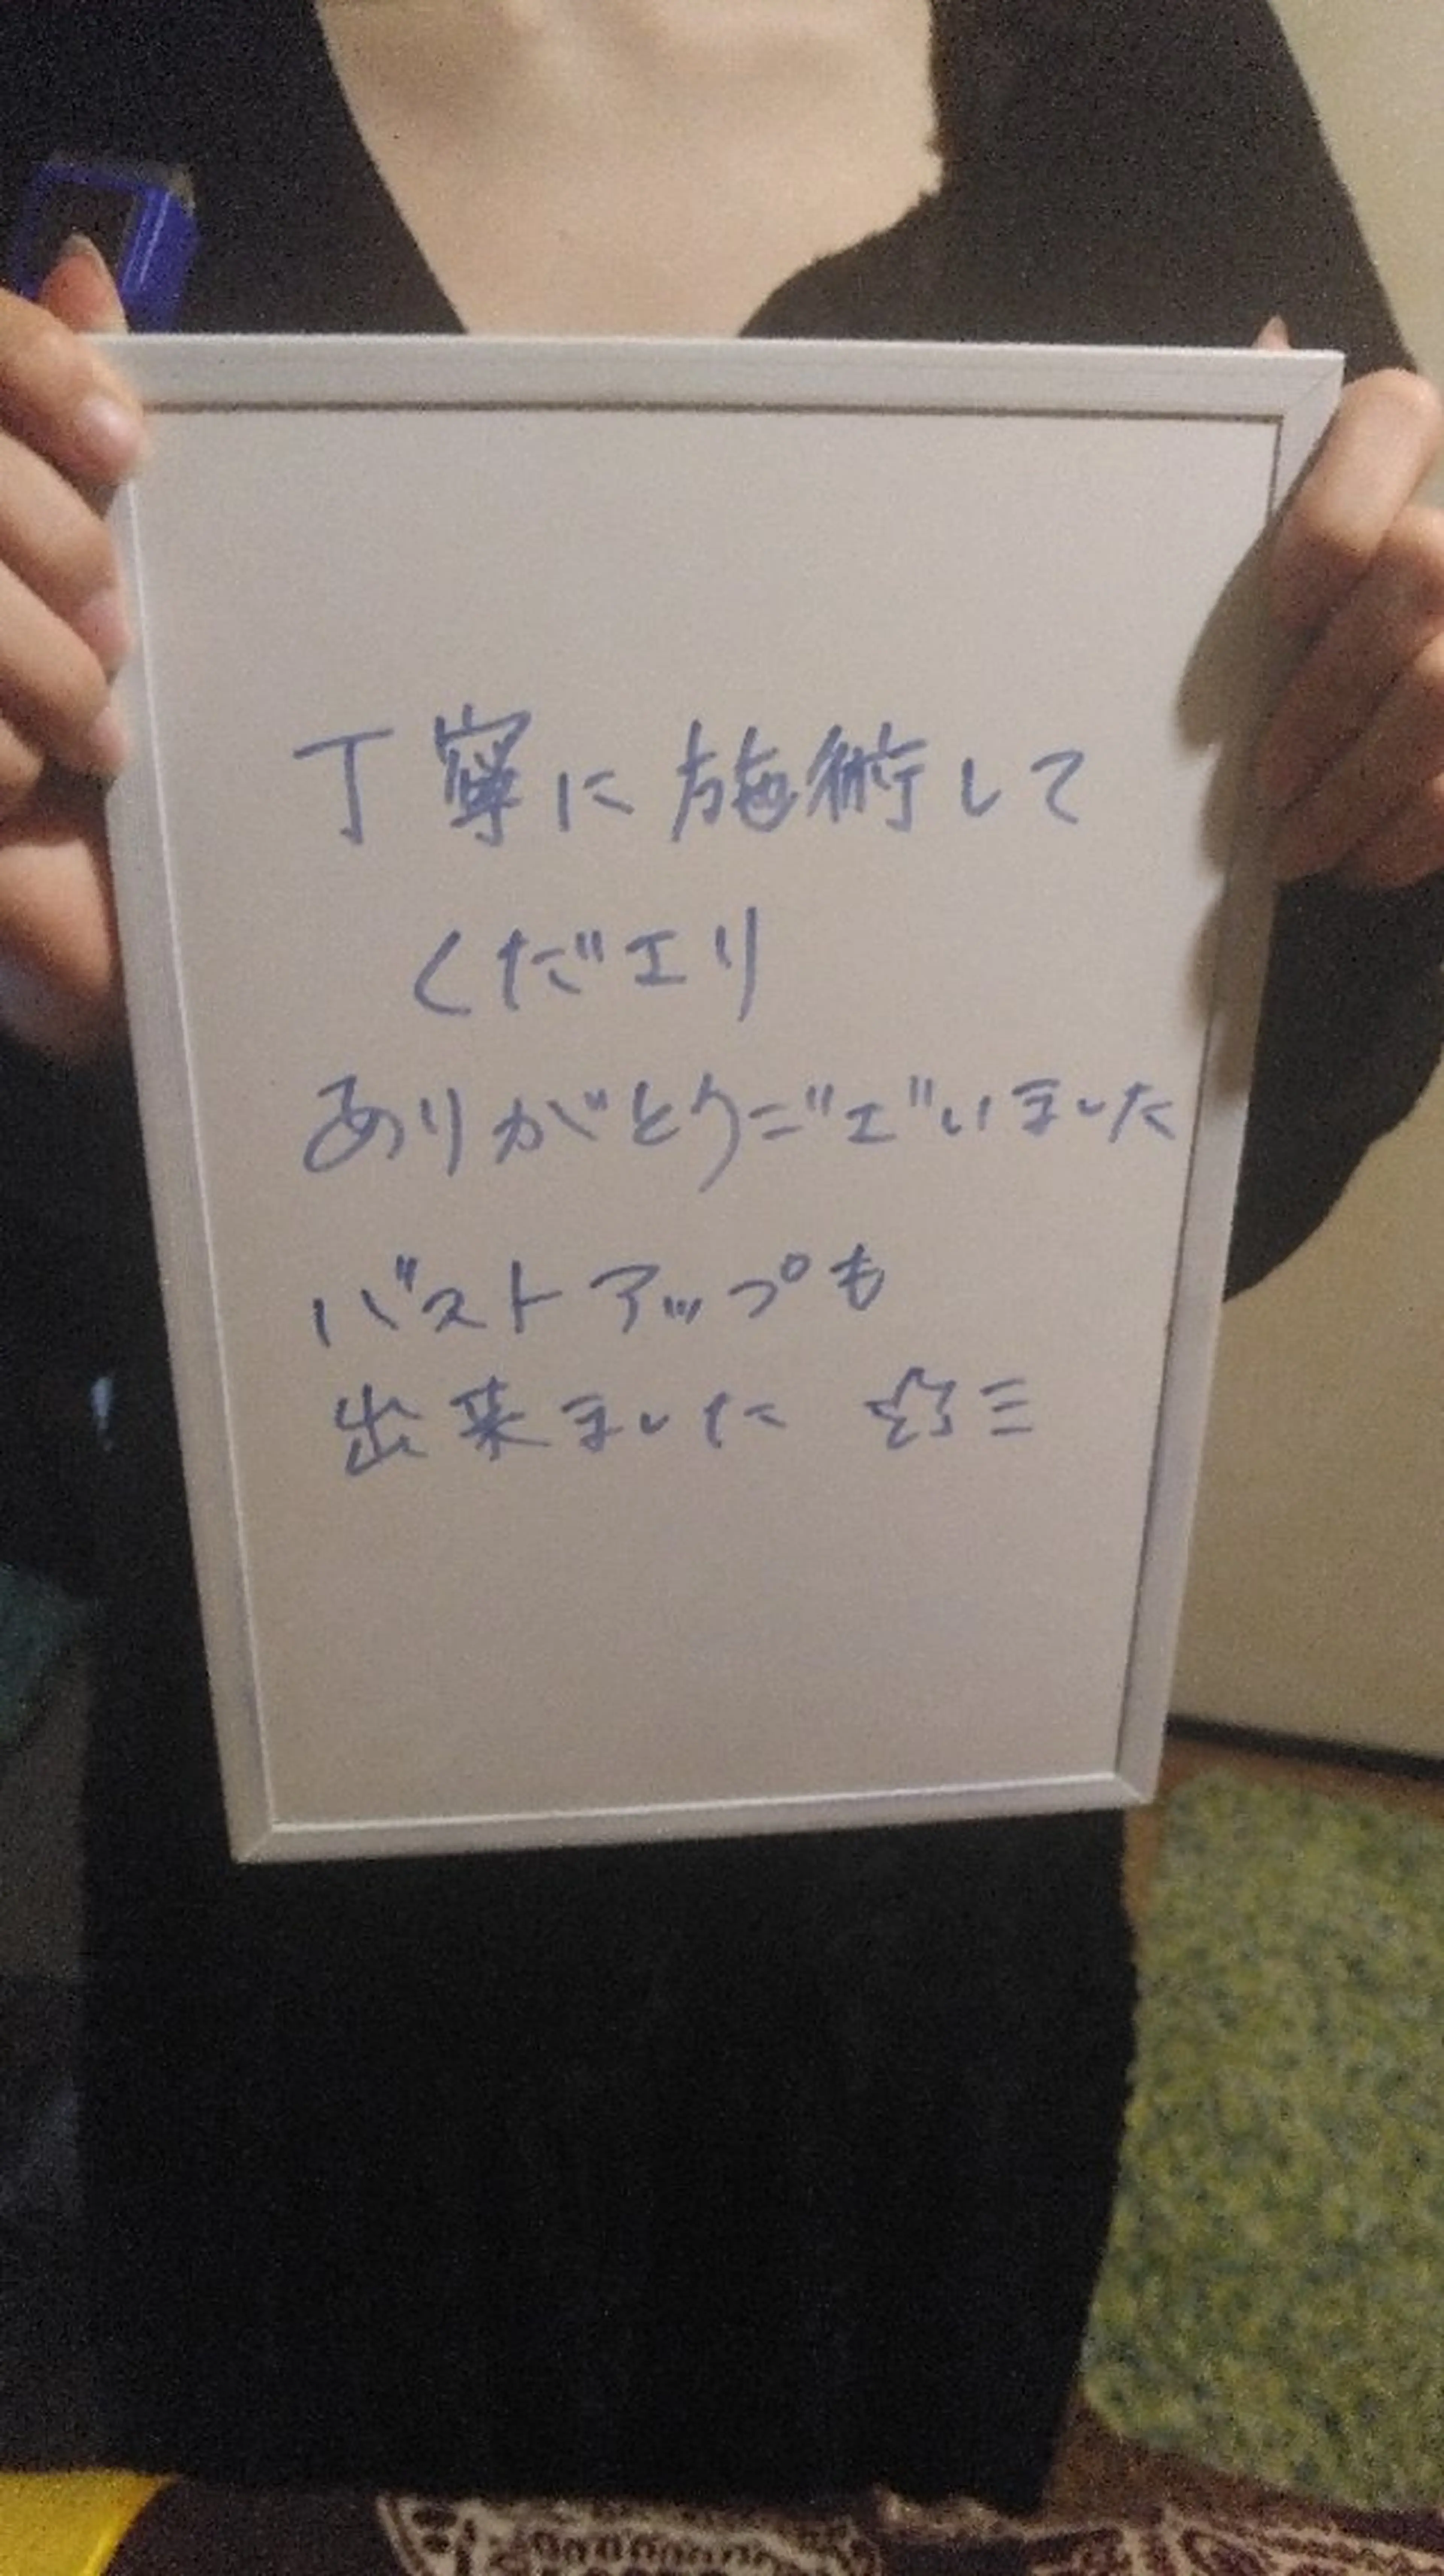 丁寧に施術して
くださり
ありがとうございました
バストアップも
出来ました ☆彡